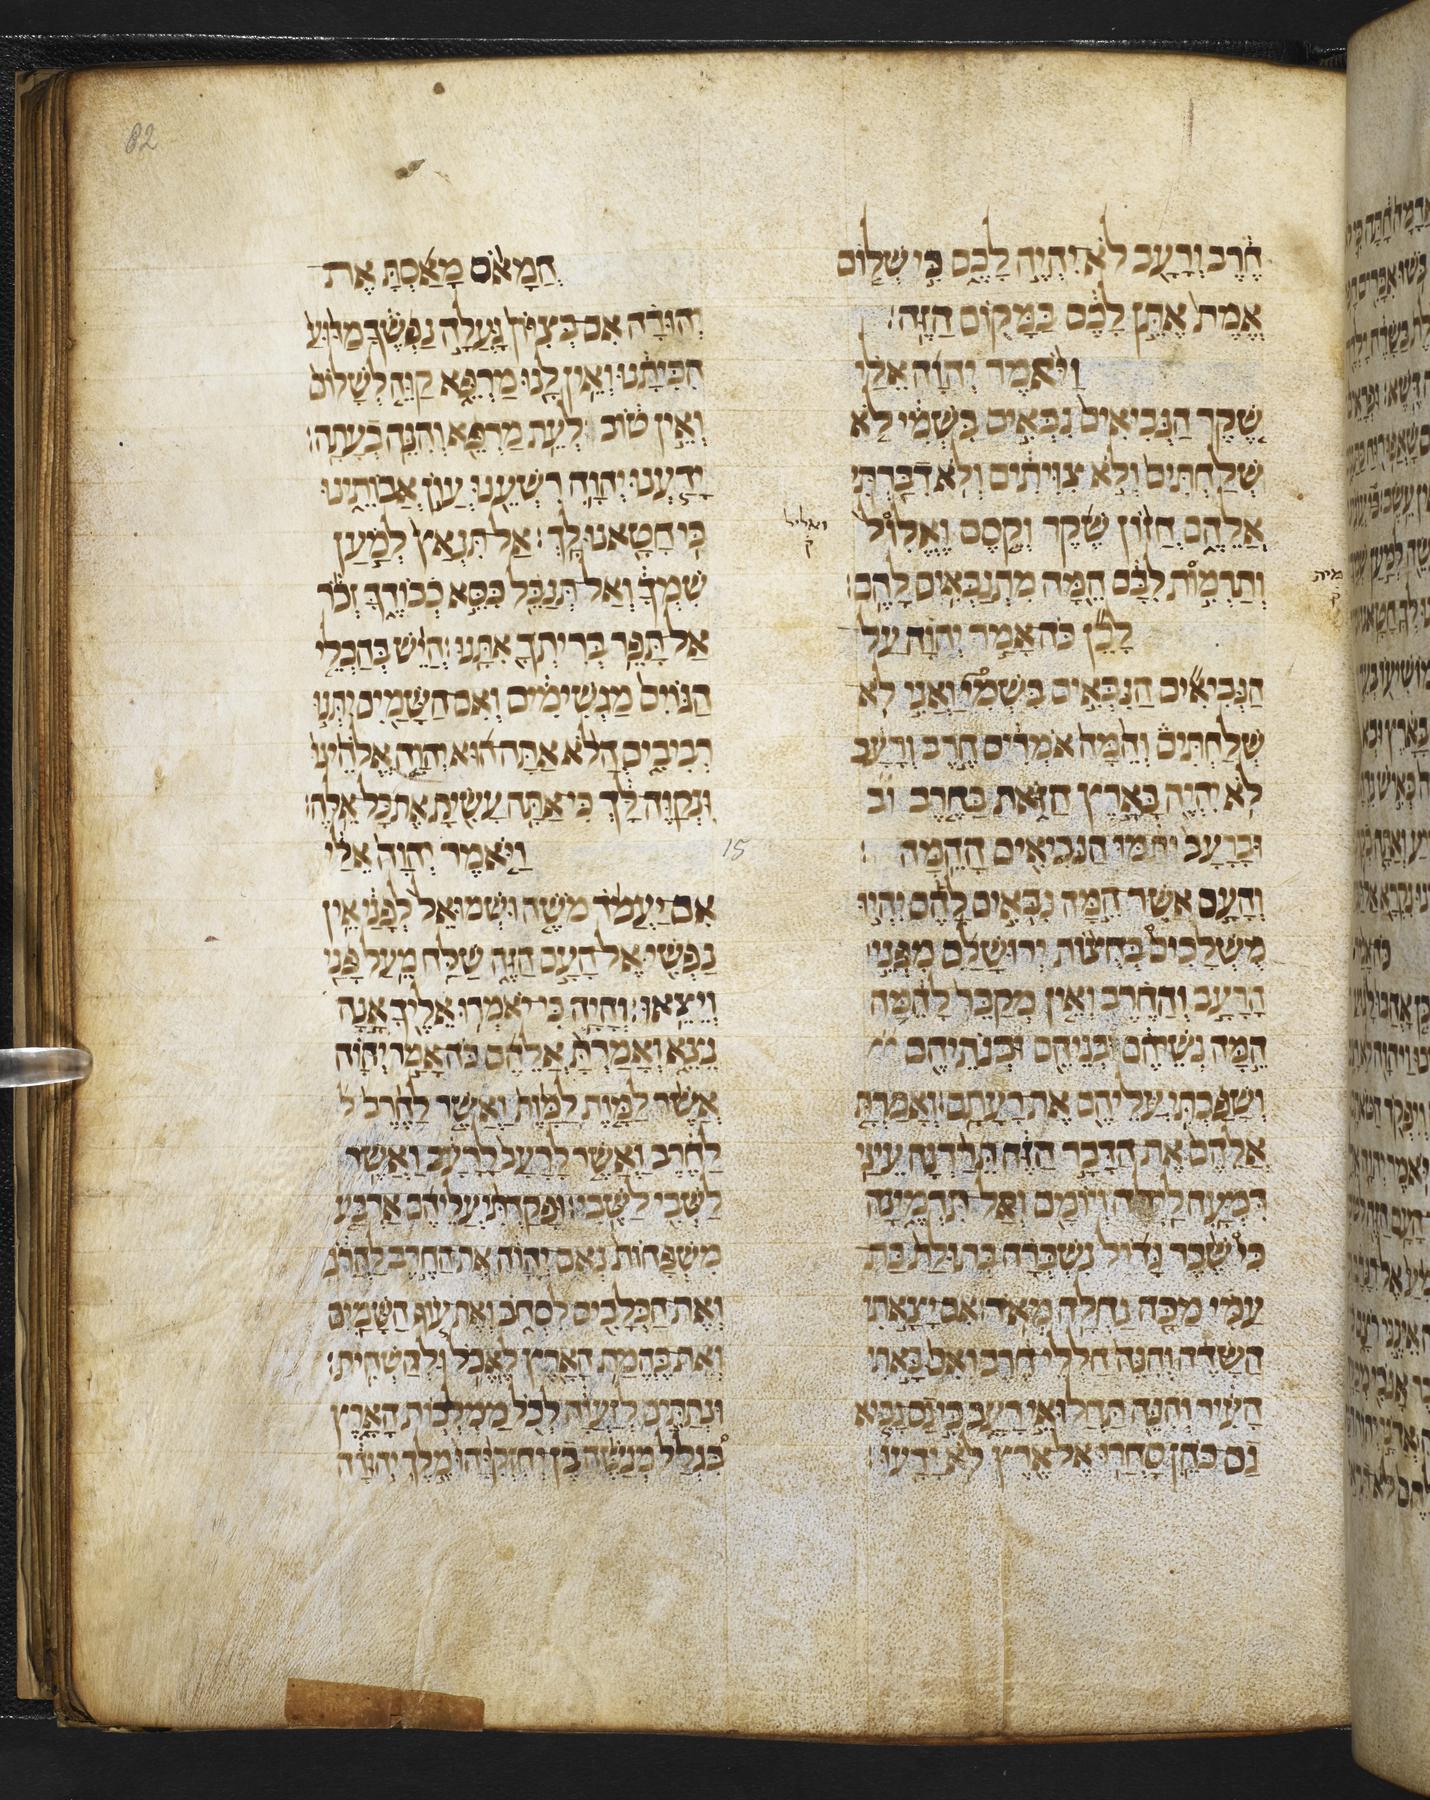 חֶרֶב וְרָעָב לֹא יִהְיֶה לָכֶם כִּי שְׁלוֹם
אֱמֶת אֶתֵּן לָכֶם בַּמָּקוֹם הַזֶּה׃
וַיֹּאמֶר יְהוָה אֵלַי
שֶׁקֶר הַנְּבִיאִים נִבְּאִים בִּשְׁמִי לֹא
שְׁלַחְתִּים וְלֹא צִוִּיתִים וְלֹא דִבַּרְתִּי
אֲלֵהֶם חֲזוֹן שֶׁקֶר וְקֶסֶם וֶאֱלוּל
ואליל
ק
וְתַרְמוּת לִבָּם הֵמָּה מִתְנַבְּאִים לָכֶם׃
לָכֵן כֹּה אָמַר יְהוָה עַל
הַנְּבִיאִים הַנִּבְּאִים בִּשְׁמִי וַאֲנִי לֹא
שְׁלַחְתִּים וְהֵמָּה אֹמְרִים חֶרֶב וְרָעָב
לֹא יִהְיֶה בָּאָרֶץ הַזֹּאת בַּחֶרֶב וב
וּבָרָעָב יִתַּמּוּ הַנְּבִיאִים הָהֵמָּה׃
וְהָעָם אֲשֶׁר הֵמָּה נִבְּאִים לָהֶם יִהְיוּ
מֻשְׁלָכִים בְּחֻצוֹת יְרוּשָׁלִַם מִפְּנֵי
הָרָעָב וְהַחֶרֶב וְאֵין מְקַבֵּר לָהֵמָּה
הֵמָּה נְשֵׁיהֶם וּבְנֵיהֶם וּבְנֹתֵיהֶם
וְשָׁפַכְתִּי עֲלֵיהֶם אֶת רָעָתָם׃ וְאָמַרְתָּ
אֲלֵהֶם אֶת הַדָּבָר הַזֶּה תֵּרַדְנָה עֵינַי
דִּמְעָה לַיְלָה וְיוֹמָם וְאַל תִּדְמֶינָה
כִּי שֶׁבֶר גָּדוֹל נִשְׁבְּרָה בְּתוּלַת בַּת
עַמִּי מַכָּה נַחְלָה מְאֹד׃ אִם יָצָאתִי
הַשָּׂדֶה וְהִנֵּה חַלְלֵי חֶרֶב וְאִם בָּאתִי
הָעִיר וְהִנֵּה תַּחֲלוּאֵי רָעָב כִּי גַם נָבִיא
גַם כֹּהֵן סָחֲרוּ אֶל אֶרֶץ לֹא יָדָעוּ׃
הֲמָאֹס מָאַסְתָּ אֶת
יְהוּדָה אִם בְּצִיּוֹן גָּעֲלָה נַפְשֶׁךָ מַדּוּעַ
הִכִּיתָנוּ וְאֵין לָנוּ מַרְפֵּא קַוֵּה לְשָׁלוֹם
וְאֵין טוֹב לְעֵת מַרְפֵּא וְהִנֵּה בְעָתָה׃
יָדַעְנוּ יְהוָה רִשְׁעֵנוּ עֲוֹן אֲבוֹתֵינוּ
כִּי חָטָאנוּ לָךְ׃ אַל תִּנְאַץ לְמַעַן
שִׁמְךָ וְאַל תְּנַבֵּל כִּסֵּא כְבוֹדֶךָ זְכֹר
אַל תָּפֵר בְּרִיתְךָ אִתָּנוּ׃ הֲיֵשׁ בְּהַבְלֵי
הַגּוֹיִם מַגְשִׁימִים וְאִם הַשָּׁמַיִם יִתְּנוּ
רְבִיבִים הֲלֹא אַתָּה הוּא יְהוָה אֱלֹהֵינוּ
וּנְקַוֶּה לָּךְ כִּי אַתָּה עָשִׂיתָ אֶת כָּל אֵלֶּה׃
15
וַיֹּאמֶר יְהוָה אֵלַי
אִם יַעֲמֹד מֹשֶׁה וּשְׁמוּאֵל לְפָנַי אֵין
נַפְשִׁי אֶל הָעָם הַזֶּה שַׁלַּח מֵעַל פָּנַי
וְיֵצֵאוּ׃ וְהָיָה כִּי יֹאמְרוּ אֵלֶיךָ אָנָה
נֵצֵא וְאָמַרְתָּ אֲלֵהֶם כֹּה אָמַר יְהוָה
אֲשֶׁר לַמָּוֶת לַמָּוֶת וַאֲשֶׁר לַחֶרֶב ל
לַחֶרֶב וַאֲשֶׁר לָרָעָב לָרָעָב וַאֲשֶׁר
לַשְּׁבִי לַשֶּׁבִי׃ וּפָקַדְתִּי עֲלֵיהֶם אַרְבַּע
מִשְׁפָּחוֹת נְאֻם יְהוָה אֶת הַחֶרֶב לַהֲרֹג
וְאֶת הַכְּלָבִים לִסְחֹב וְאֶת עוֹף הַשָּׁמַיִם
וְאֶת בֶּהֱמַת הָאָרֶץ לֶאֱכֹל וּלְהַשְׁחִית׃
וּנְתַתִּים לְזַעֲוָה לְכֹל מַמְלְכוֹת הָאָרֶץ
בִּגְלַל מְנַשֶּׁה בֶן יְחִזְקִיָּהוּ מֶלֶךְ יְהוּדָה